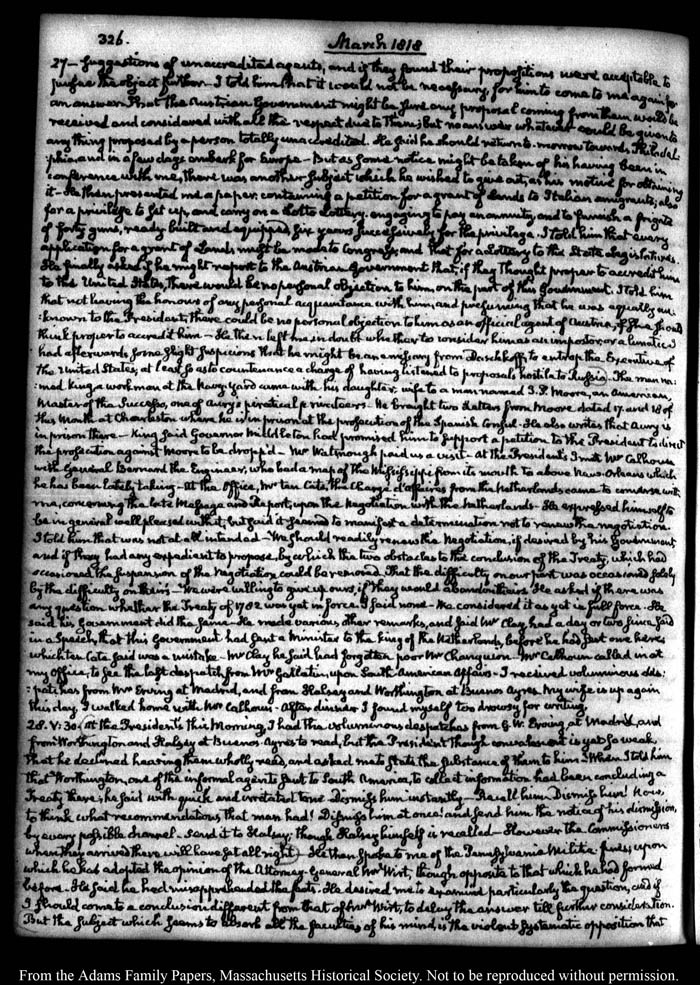 326.
March 1818
27— suggestions of unaccredited agents, and if they found their propositions were acceptable to
pursue the object further— I told him that it would not be necessary for him to come to me again for
an answer. That the Austrian Government might be sure any proposal coming from them would be
received and considered with all the respect due to them; but no answer whatever could be given to
any thing proposed by a person totally unaccredited. He said he should return to-morrow towards Philadel-
phia, and in a few days embark for Europe— But as some notice might be taken of his having been in
conference with me, there was another subject which he wished to give out, as his motive for obtaining
it— He then presented me a paper, containing a petition for a grant of Lands to Italian emigrants; also
for a privilege to set up, and carry on a Lotto Lottery, engaging to pay an annuity, and to furnish a frigate
of forty guns, ready built and equipped, six years successively for the privilege. I told him that every
application for a grant of Lands must be made to Congress, and that for a Lottery to the State Legislatures.
He finally asked if he might report to the Austrian Government that, if they thought proper to accredit him
to the United States, there would be no personal objection to him, on the part of this Government. I told him
that not having the honour of any personal acquaintance with him, and presuming that he was equally un-
:known to the President, there could be no personal objection to him as an official agent of Austria, if she should
think proper to accredit him— He then left me in doubt whether to consider him as an impostor or a lunatic. I
had afterwards some slight suspicions that he might be an emissary from Daschkoff, to entrap the Executive of
the United States, at least so as to countenance a charge of having listened to proposals hostile to Russia). The man na:
:med King, a workman at the Navy Yard came with his daughter, wife to a man named J. P. Moore, an American,
Master of the Successo, one of Aury's piratical privateers— He brought two Letters from Moore dated 17. and 18 of
this Month at Charleston where he is in prison at the prosecution of the Spanish Consul— He also writes that Aury is
in prison there— King said Governor Middleton had promised him to support a petition to the President to direct
the prosecution against Moore to be drop'd— Mr Watmough paid us a visit— At the President's I met Mr Calhoun
with General Bernard the Engineer, who had a map of the Mississippi from its mouth to above New-Orleans which
he has been lately taking— At the Office, Mr ten Cate, the Chargé d'Affaires from the Netherlands came to converse with
me, concerning the late Message and Report, upon the Negotiation with the Netherlands— He expressed himself to
be in general well pleased with it, but said it seemed to manifest a determination not to renew the negotiation.
I told him that was not at all intended— We should readily renew the Negotiation, if desired by his Government,
and if they had any expedient to propose, by which the two obstacles to the conclusion of the Treaty, which had
occasioned the suspension of the Negotiation could be removed. That the difficulty on our part was occasioned solely
by the difficulty on theirs— We were willing to give up ours, if they would abandon theirs. He asked if there was
any question whether the Treaty of 1782 was yet in force. I said none— We considered it as yet in full force— He
said his Government did the same— He made various other remarks, and said Mr Clay, had a day or two since said
in a Speech, that this Government had sent a Minister to the King of the Netherlands, before he had sent one here,
which ten Cate said was a mistake— Mr Clay he said had forgotten poor Mr Changuion— Mr Calhoun called in at
my office, to see the last despatch from Mr Gallatin, upon South American Affairs— I received voluminous des:
:patches from Mr Erving at Madrid, and from Halsey and Worthington at Buenos Ayres. My wife is up again
this day. I walked home with Mr Calhoun— After dinner I found myself too drowsy for writing.
28. V:30. At the President's this Morning, I had the voluminous despatches from G. W. Erving at Madrid, and
from Worthington and Halsey at Buenos-Ayres to read, but the President though convalescent is yet so weak,
that he declined hearing them wholly read, and asked me to state the substance of them to him. When I told him
that Worthington, one of the informal agents sent to South America, to collect information had been concluding a
Treaty there, he said with quick and irritated tone— Dismiss him instantly— Recall him! Dismiss him! Now,
to think what recommendations that man had! Dismiss him at once! and send him the notice of his dismission,
by every possible channel— Send it to Halsey; though Halsey himself is recalled— However the Commissioners
when they arrive there will have set all right). He then spoke to me of the Pennsylvania Militia fines, upon
which he has adopted the opinion of the Attorney General Mr Wirt, though opposite to that which he had formed
before— He said he had misapprehended the facts. He desired me to examine particularly the question, and if
I should come to a conclusion different from that of Mr Wirt, to delay the answer till further consideration.
But the subject which seems to absorb all the faculties of his mind, is the violent systematic opposition that
From the Adams Family Papers, Massachusetts Historical Society. Not to be reproduced without permission.